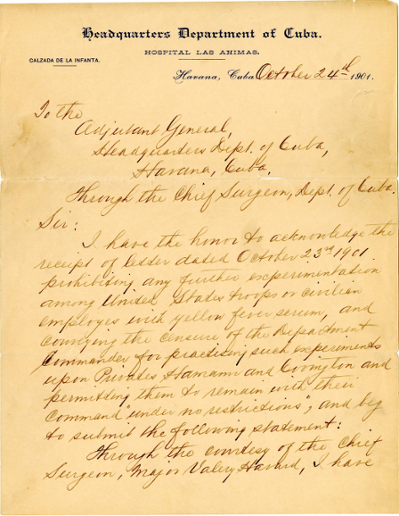 Headquarters Department of Cuba.
HOSPITAL LAS ANIMAS.
CALZADA DE LA INFANTA.
Havana, Cuba October 24th 1901.
To the
Adjutant General,
Headquarters Dept. of Cuba,
Havana, Cuba.
Through the Chief Surgeon, Dept. of Cuba.
Sir:
I have the honor to acknowledge the
receipt of letter dated October 23rd 1901
prohibiting any further experimentation
among United States troops or civilian
employes with yellow fever serum, and
conveying the censure of the Department
Commander for practising such experiments
upon Privates Hamann and Covington and
permitting them to remain with their
command "under no restrictions", and beg
to submit the following statement:
Through the courtesy of the Chief
Surgeon, Major Valery Havard, I have